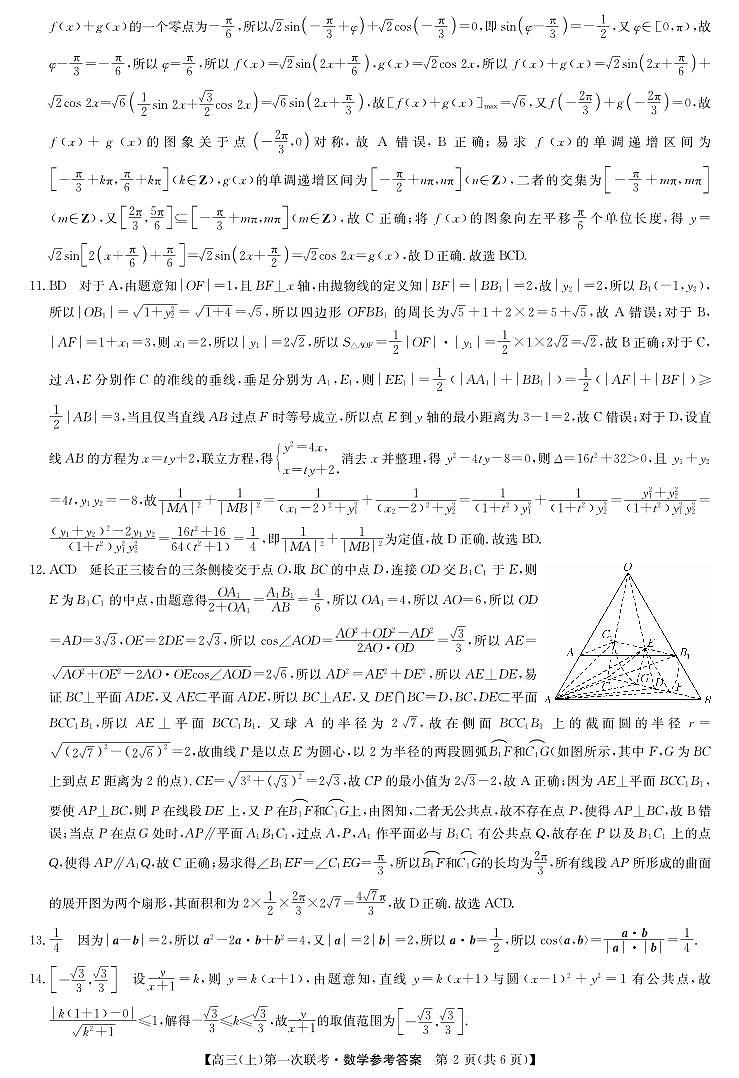 f(x)+g(x)的一个零点为-π/6,所以√2sin(-π/3+φ)+√2cos(-π/3)=0,即sin(φ-π/3)=-1/2,又φ∈[0,π),故
φ-π/3=-π/6,所以φ=π/6,所以f(x)=√2sin(2x+π/6),g(x)=√2cos 2x,所以f(x)+g(x)=√2sin(2x+π/6)+
√2cos 2x=√6(1/2 sin 2x+√3/2 cos 2x)=√6sin(2x+π/3),故[f(x)+g(x)]max=√6,又f(-2π/3)+g(-2π/3)=0,故
f(x)+g(x)的图象关于点(-2π/3,0)对称,故A错误,B正确;易求f(x)的单调递增区间为
[-π/3+kπ,π/6+kπ](k∈Z),g(x)的单调递增区间为[-π/2+nπ,nπ](n∈Z),二者的交集为[-π/3+mπ,mπ]
(m∈Z),又[2π/3,5π/6]⊆[-π/3+mπ,mπ](m∈Z),故C正确;将f(x)的图象向左平移π/6个单位长度,得y=
√2sin[2(x+π/6)+π/6]=√2sin(2x+π/2)=√2cos 2x=g(x),故D正确.故选BCD.
11.BD 对于A,由题意知|OF|=1,且BF⊥x轴,由抛物线的定义知|BF|=|BB₁|=2,故|y₂|=2,所以B₁(-1,y₂),
所以|OB₁|=√(1+y₂²)=√(1+4)=√5,所以四边形OFBB₁的周长为√5+1+2×2=5+√5,故A错误;对于B,
|AF|=1+x₁=3,则x₁=2,所以|y₁|=2√2,所以S△AOF=1/2|OF|·|y₁|=1/2×1×2√2=√2,故B正确;对于C,
过A,E分别作C的准线的垂线,垂足分别为A₁,E₁,则|EE₁|=1/2(|AA₁|+|BB₁|)=1/2(|AF|+|BF|)≥
1/2|AB|=3,当且仅当直线AB过点F时等号成立,所以点E到y轴的最小距离为3-1=2,故C错误;对于D,设直
线AB的方程为x=ty+2,联立方程,得{y²=4x, x=ty+2,消去x并整理,得y²-4ty-8=0,则Δ=16t²+32>0,且y₁+y₂
=4t,y₁y₂=-8,故1/|MA|²+1/|MB|²=1/((x₁-2)²+y₁²)+1/((x₂-2)²+y₂²)=1/((1+t²)y₁²)+1/((1+t²)y₂²)=(y₁²+y₂²)/((1+t²)y₁²y₂²)=
((y₁+y₂)²-2y₁y₂)/((1+t²)y₁²y₂²)=(16t²+16)/(64(t²+1))=1/4,即1/|MA|²+1/|MB|²为定值,故D正确.故选BD.
12.ACD 延长正三棱台的三条侧棱交于点O,取BC的中点D,连接OD交B₁C₁于E,则
E为B₁C₁的中点,由题意得OA₁/(2+OA₁)=A₁B₁/AB=4/6,所以OA₁=4,所以AO=6,所以OD
=AD=3√3,OE=2DE=2√3,所以cos∠AOD=(AO²+OD²-AD²)/(2AO·OD)=√3/3,所以AE=
√(AO²+OE²-2AO·OEcos∠AOD)=2√6,所以AD²=AE²+DE²,所以AE⊥DE,易
证BC⊥平面ADE,又AE⊂平面ADE,所以BC⊥AE,又DE∩BC=D,BC,DE⊂平面
BCC₁B₁,所以AE⊥平面BCC₁B₁.又球A的半径为2√7,故在侧面BCC₁B₁上的截面圆的半径r=
√((2√7)²-(2√6)²)=2,故曲线Γ是以点E为圆心,以2为半径的两段圆弧B₁F和C₁G(如图所示,其中F,G为BC
上到点E距离为2的点).CE=√(3²+(√3)²)=2√3,故CP的最小值为2√3-2,故A正确;因为AE⊥平面BCC₁B₁,
要使AP⊥BC,则P在线段DE上,又P在B₁F和C₁G上,由图知,二者无公共点,故不存在点P,使得AP⊥BC,故B错
误;当点P在点G处时,AP∥平面A₁B₁C₁,过点A,P,A₁作平面必与B₁C₁有公共点Q,故存在P以及B₁C₁上的点
Q,使得AP∥A₁Q,故C正确;易求得∠B₁EF=∠C₁EG=π/3,所以B₁F和C₁G的长均为2π/3,所有线段AP所形成的曲面
的展开图为两个扇形,其面积和为2×1/2×2π/3×2√7=4√7π/3,故D正确.故选ACD.
13.1/4 因为|a-b|=2,所以a²-2a·b+b²=4,又|a|=2|b|=2,所以a·b=1/2,所以cos⟨a,b⟩=a·b/(|a|·|b|)=1/4.
14.[-√3/3,√3/3] 设y/(x+1)=k,则y=k(x+1),由题意知,直线y=k(x+1)与圆(x-1)²+y²=1有公共点,故
|k(1+1)-0|/√(k²+1)≤1,解得-√3/3≤k≤√3/3,故y/(x+1)的取值范围为[-√3/3,√3/3].
【高三(上)第一次联考·数学参考答案 第2页(共6页)】